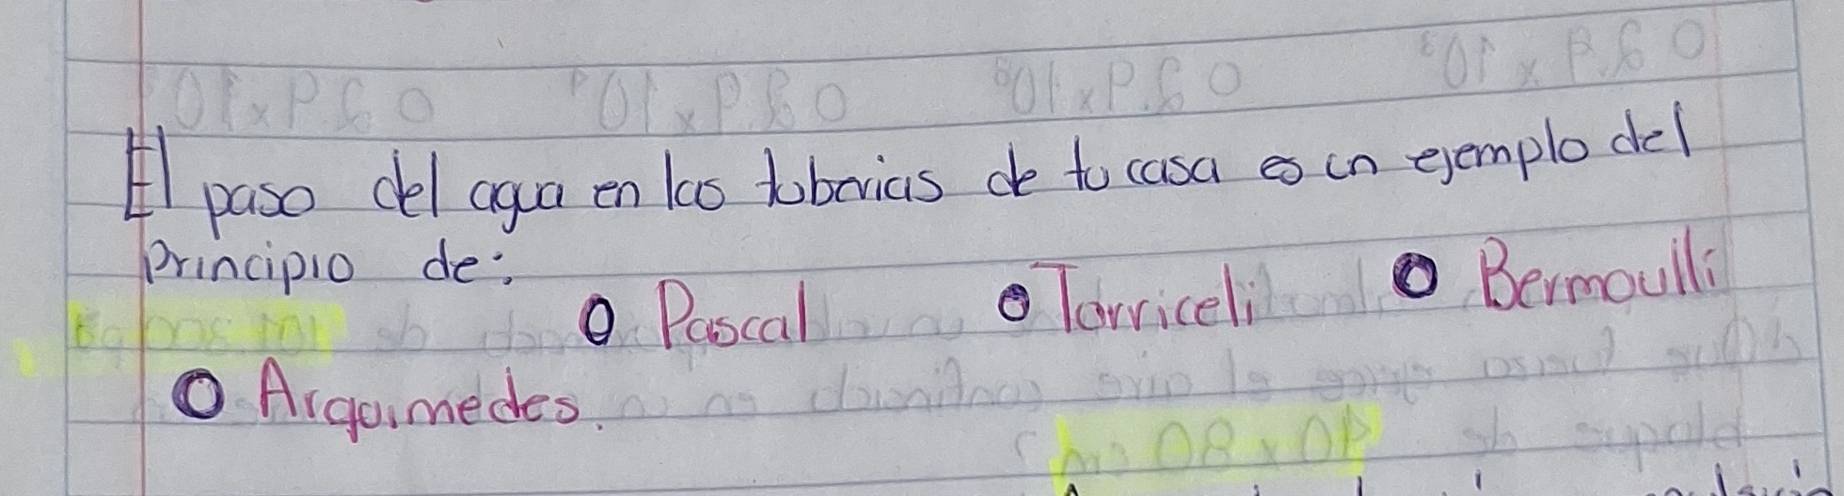 El paso del agua en las tuberias de tu casa es un ejemplo del
principio de:
O Pascal O Torriceli O Bermoulli
O Arquimedes.